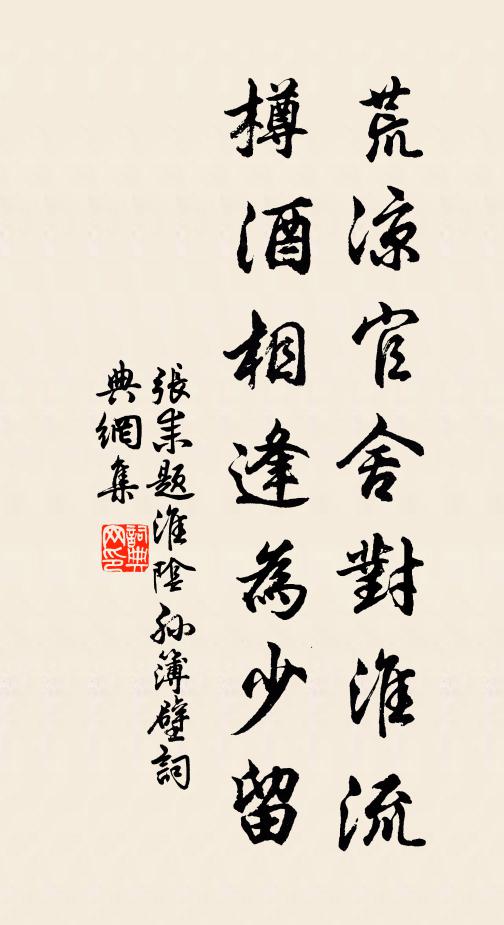 荒凉官舍對淮流
樽酒相逢為少留
張耒題淮陰孙簿壁詞
典網集
詞典網印